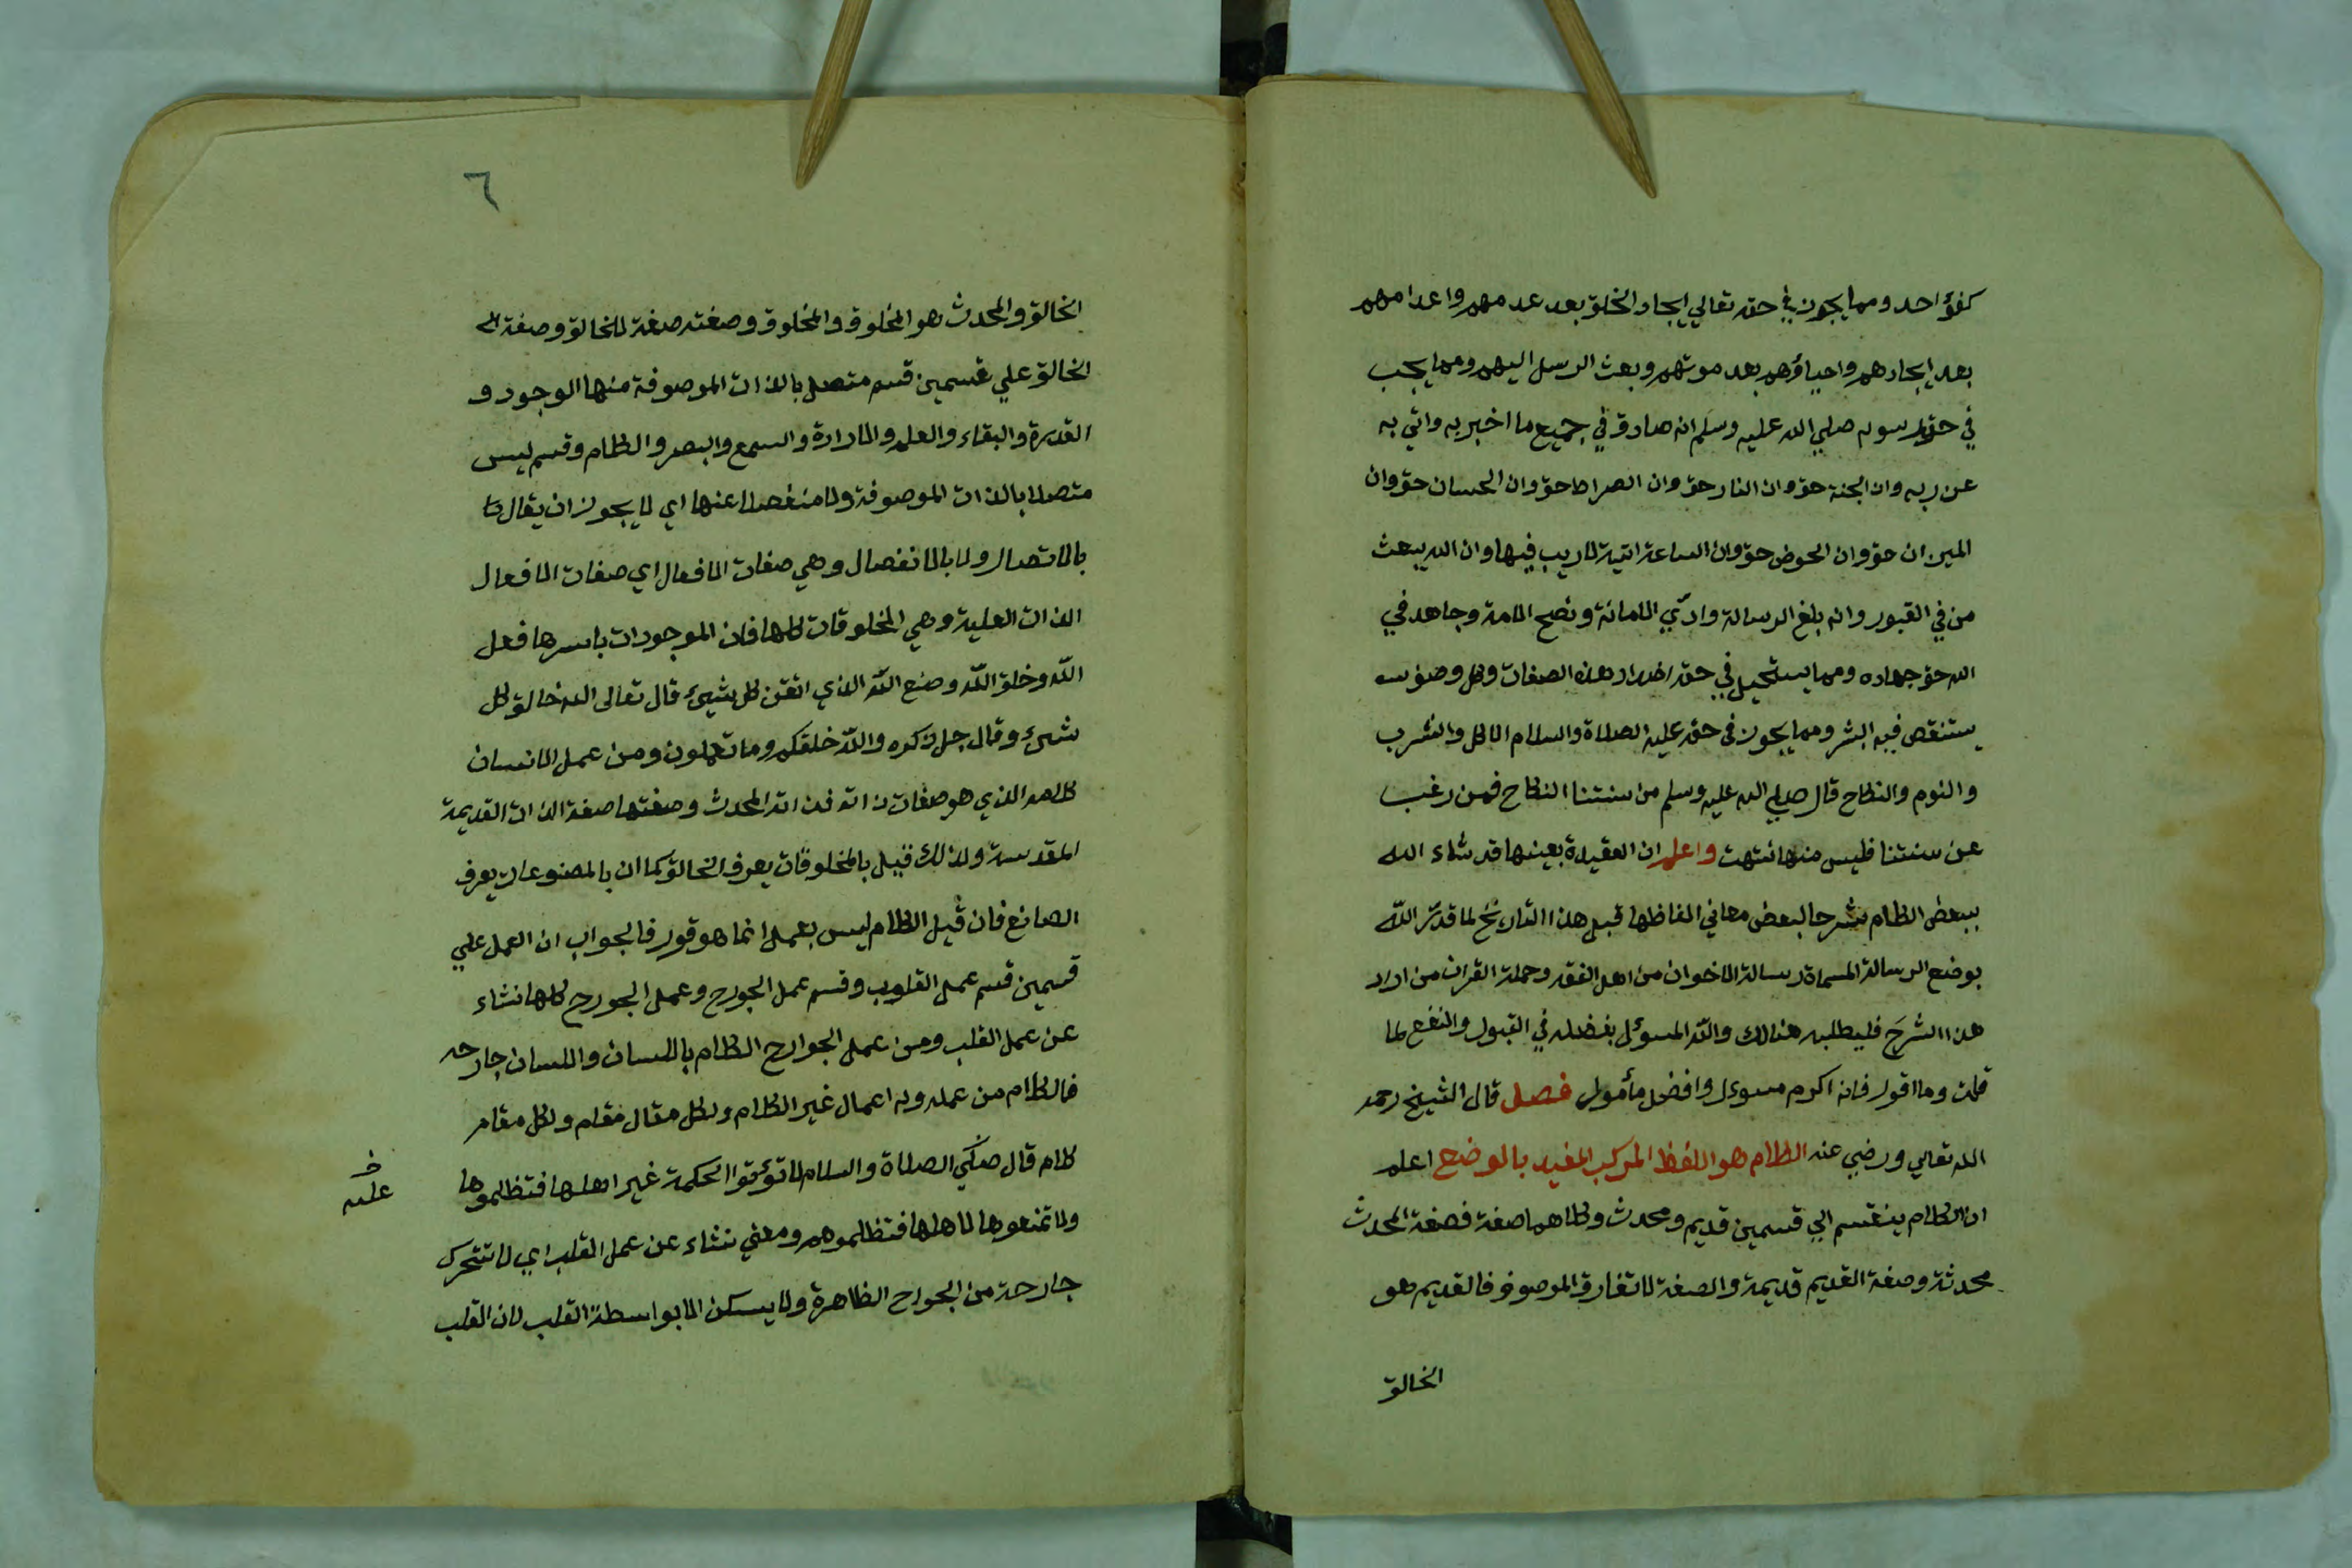 كفؤا احد ومما يجوز في حقه تعالي ايجاد الخلق بعد عدمهم واعدامهم
بعد ايجادهم واحياؤهم بعد موتهم وبعث الرسل اليهم ومما يجب
في حق رسوله صلي الله عليه وسلم انه صادق في جميع ما اخبر به واتي به
عن ربه وان الجنة حق وان النار حق وان الصراط حق وان الحساب حق وان
الميزان حق وان الحوض حق وان الساعة اتية لا ريب فيها وان الله يبعث
من في القبور وانه بلغ الرسالة وادّي الامانة ونصح الامة وجاهد في
الله حق جهاده ومما يستحيل في حقه اضداد هذه الصفات وكل وصف
يستنقص فيه البشر ومما يجوز في حقه عليه الصلاة والسلام الاكل والشرب
والنوم والنكاح قال صلي الله عليه وسلم من سنتنا النكاح فمن رغب
عن سنتنا فليس منا انتهت واعلم ان العقيدة بعينها قد شاء الله
ببعض الكلام شرحا لبعض معاني الفاظها قبل هذا التاريخ لما قدّر الله
بوضع الرسالة المسماة رسالة الاخوان من اهل الفقه وحملة القران من اراد
هذا الشرح فليطلبه هنالك والله المسوئل بفضله في القبول والنفع لما
قلت وما اقول فانه اكرم مسوءل وافضل مأمول فصل قال الشيخ رحمه
الله تعالي ورضي عنه الكلام هو اللفظ المركب المفيد بالوضع اعلم
ان الكلام ينقسم الي قسمين قديم ومحدث وكلاهما صفة فصفة المحدث
محدثة وصفة القديم قديمة والصفة لا تفارق الموصوف فالقديم هو
الخالق
٦
الخالق والمحدث هو المخلوق والمخلوق وصفته صفة للخالق وصفة
الخالق علي قسمين قسم متصل بالذات الموصوفة منها الوجود و
القدرة والبقاء والعلم والارادة والسمع والبصر والكلام وقسم ليس
متصلا بالذات الموصوفة ولا منفصلا عنها اي لا يجوز ان يقال
بالاتصال ولا بالانفصال وهي صفات الافعال اي صفات الافعال
الذات العلية وهي المخلوقات كلها فان الموجودات باسرها فعل
اللّه وخلق اللّه وصنع اللّه الذي اتقن كل شيئ قال تعالى الله خالق كل
شيئ وقال جل ذكره واللّه خلقكم وما تعملون ومن عمل الانسان
كلامه الذي هو صفات ذاته فذاته المحدث وصفتها صفة الذات القديمة
المقدسة ولذلك قيل بالمخلوقات يعرف الخالق كما ان بالمصنوعات يعرف
الصانع فان قيل الكلام ليس بعمل انما هو قول فالجواب ان العمل علي
قسمين قسم عمل القلوب وقسم عمل الجورح وعمل الجورح كلها نشاء
عن عمل القلب ومن عمل الجوارح الكلام باللسان واللسان جارحه
فالكلام من عمله وله اعمال غير الكلام ولكل مقال مقام ولكل مقام
كلام قال صلي الصلاة والسلام لا تؤتوا الحكمة غير اهلها فتظلموها
خ
عليه
ولا تمنعوها لاهلها فتظلموهم ومعني نشاء عن عمل القلب اي لا تتحرك
جارحة من الجوارح الظاهرة ولا يسكن الا بواسطة القلب لان القلب